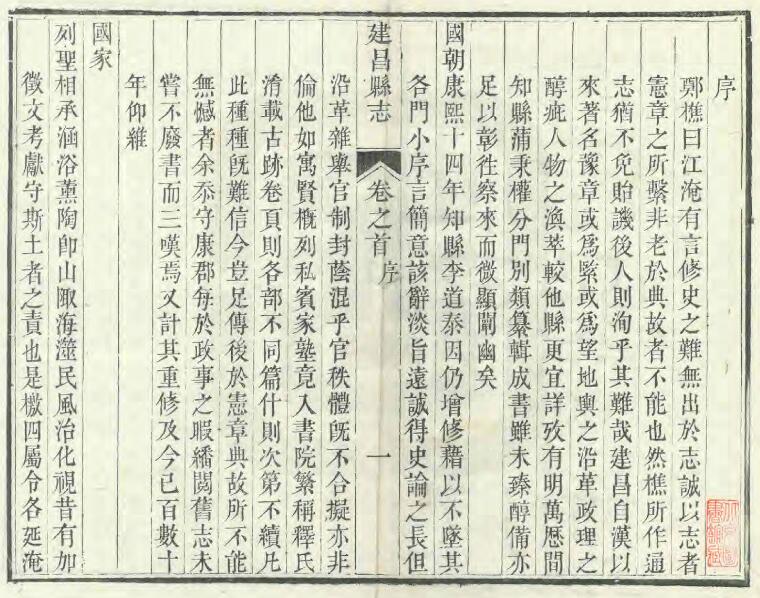 序
鄭樵曰江淹有言修史之難無出於志誠以志者
憲章之所繫非老於典故者不能也然樵所作通
志猶不免貽譏後人則洵乎其難哉建昌自漢以
來著名豫章或爲緊或爲望地輿之沿革政理之
醇疵人物之渙萃較他縣更宜詳攷有明萬歷間
知縣蒲秉權分門別類纂輯成書雖未臻醇備亦
足以彰徃察來而微顯闡幽矣
國朝康熙十四年知縣李道泰因仍增修藉以不墜其
各門小序言簡意該辭淡旨遠誠得史論之長但
建昌縣志 卷之首 序 一
沿革雜舉官制封蔭混乎官秩體旣不合擬亦非
倫他如寓賢概列私賓家塾竟入書院繁稱釋氏
淆載古跡卷頁則各部不同篇什則次第不續凡
此種種旣難信今豈足傳後於憲章典故所不能
無憾者余忝守康郡每於政事之暇繙閱舊志未
嘗不廢書而三嘆焉又計其重修及今已百數十
年仰維
國家
列聖相承涵浴薰陶卽山陬海澨民風治化視昔有加
徵文考獻守斯土者之責也是檄四屬令各延淹